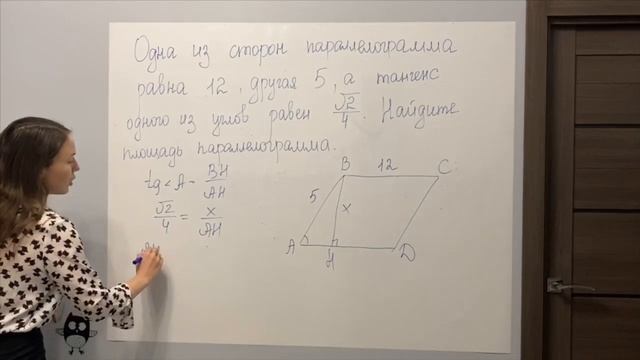 Одна из сторон параллелограмма
равна 12, другая 5, а тангенс
одного из углов равен √2/4. Найдите
площадь параллелограмма.
tg∠A = BH/AH
√2/4 = x/AH
B 12 C
5 x
A H D